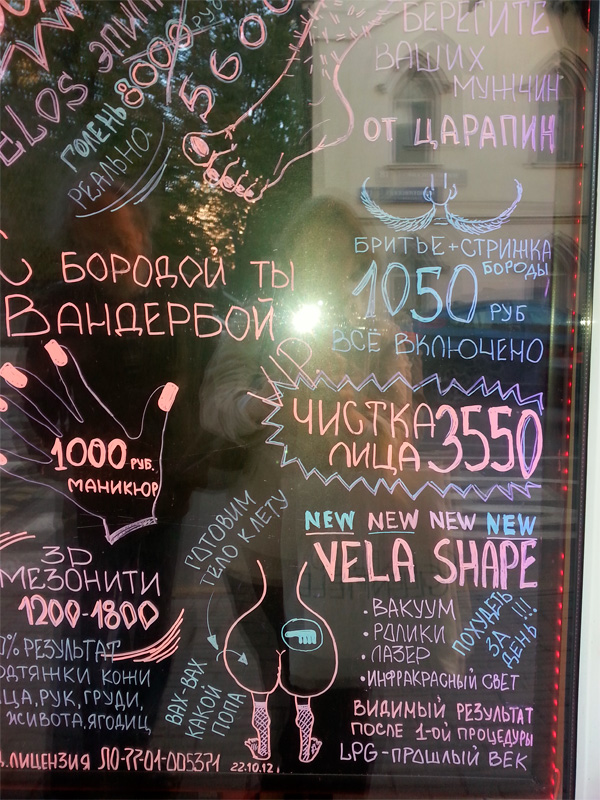 ELOS ЭПИ
ГОЛЕНЬ 8000 РУБ
РЕАЛЬНО
5600
БЕРЕГИТЕ
ВАШИХ
МУЖЧИН
ОТ ЦАРАПИН
БОРОДОЙ ТЫ
ВАНДЕРБОЙ
БРИТЬЕ+СТРИЖКА
БОРОДЫ
1050 РУБ
ВСЁ ВКЛЮЧЕНО
VIP
ЧИСТКА
ЛИЦА 3550
1000 РУБ.
МАНИКЮР
3D
МЕЗОНИТИ
1200-1800
0% РЕЗУЛЬТАТ
ОДТЯЖКИ КОЖИ
ИЦА, РУК, ГРУДИ,
ЖИВОТА, ЯГОДИЦ
ГОТОВИМ
ТЕЛО К ЛЕТУ
ВАХ-ВАХ
КАКОЙ
ПОПА
NEW NEW NEW NEW
VELA SHAPE
• ВАКУУМ
• РОЛИКИ
• ЛАЗЕР
• ИНФРАКРАСНЫЙ СВЕТ
ПОХУДЕТЬ
ЗА 1
ДЕНЬ!!!
ВИДИМЫЙ РЕЗУЛЬТАТ
ПОСЛЕ 1-ОЙ ПРОЦЕДУРЫ
LPG-ПРОШЛЫЙ ВЕК
Д.ЛИЦЕНЗИЯ ЛО-77-01-005371 22.10.12 г